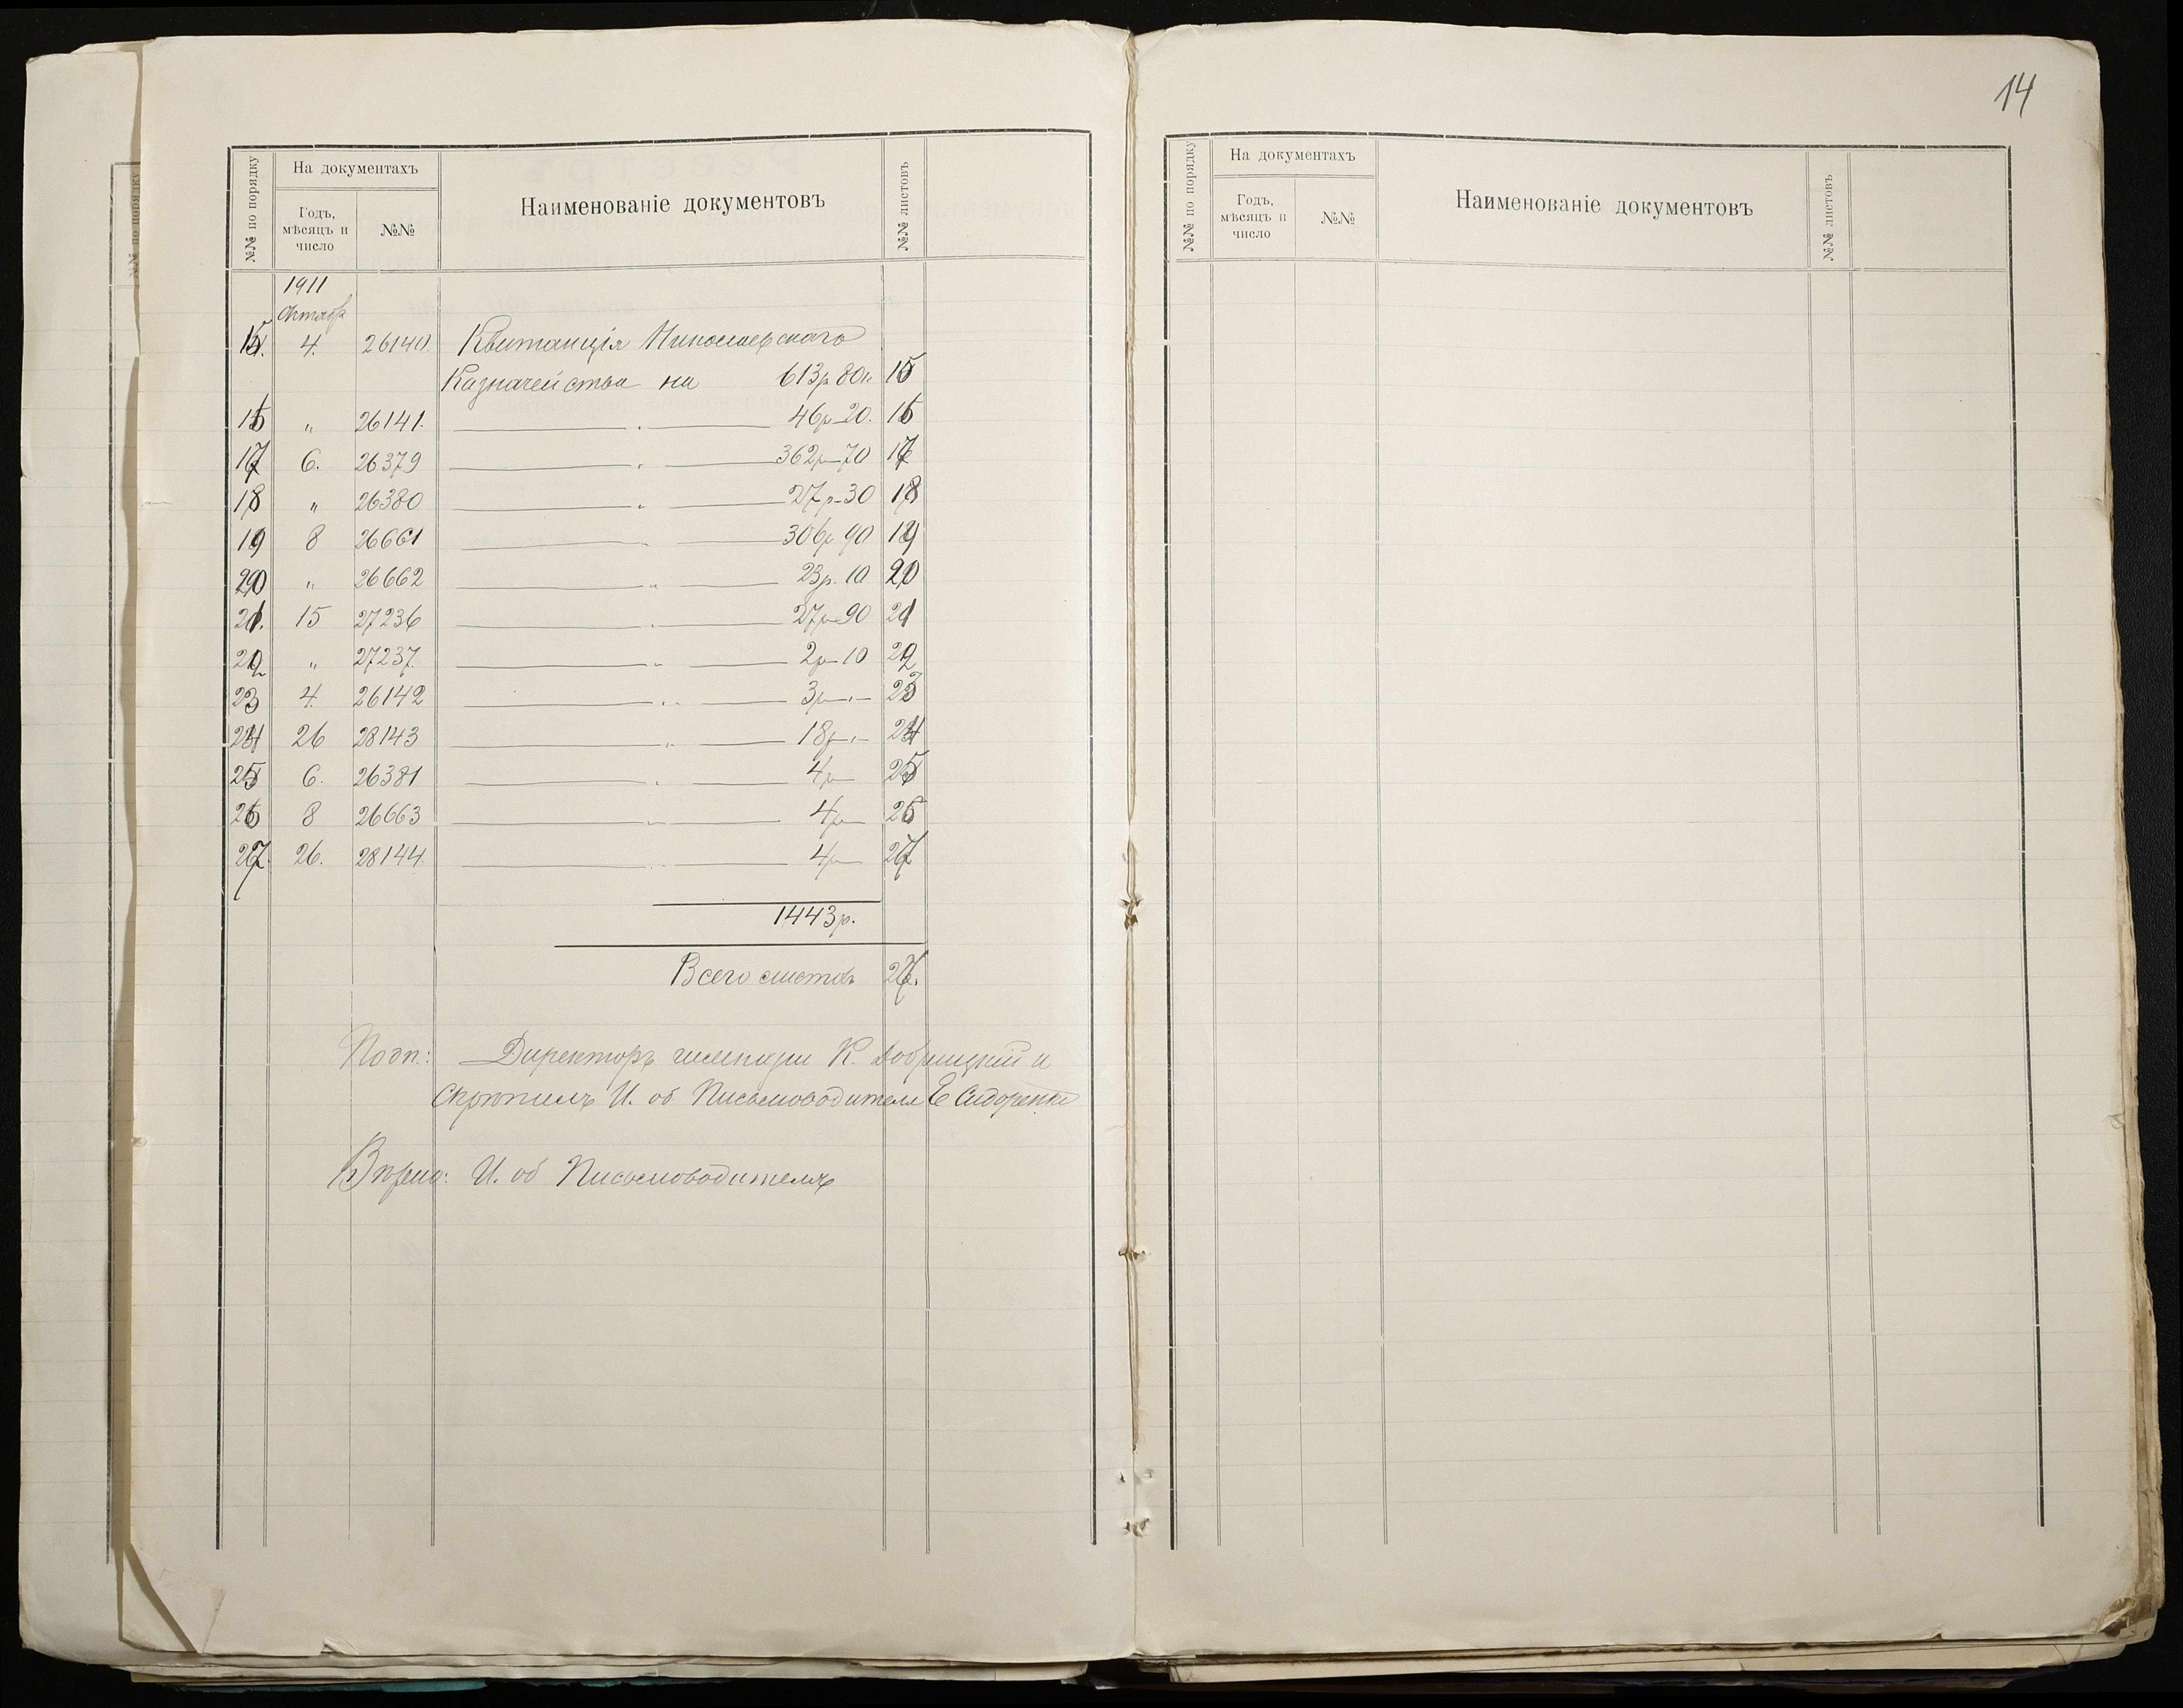 14
№№ по порядку
На документахъ
Годъ, мѣсяцъ и число
№№
Наименованіе документовъ
№№ листовъ
1911
Октябр
15. 4. 26140. Квитанція Николаевского
Казначейства на 613р 80к 15
16 " 26141. — " — 46р 20. 16
17 6. 26379 — " — 362р 70 17
18 " 26380 — " — 27р 30 18
19 8 26661 — " — 306р 90 19
20 " 26662 — " — 23р. 10 20
21. 15 27236 — " — 27р 90 21
22 " 27237. — " — 2р 10 22
23 4. 26142 — " — 3р " — 23
24 26 28143 — " — 18р " — 24
25 6. 26381 — " — 4р — 25
26 8 26663 — " — 4р — 26
27. 26. 28144. — " — 4р — 27
1443р.
Всего листовъ 27.
Подп.: Директоръ гимназіи К. Добрицкій и
Скрѣпилъ И. об Письмоводителя Е Сидоренко
Вѣрно: И. об Письмоводителя
№№ по порядку
На документахъ
Годъ, мѣсяцъ и число
№№
Наименованіе документовъ
№№ листовъ